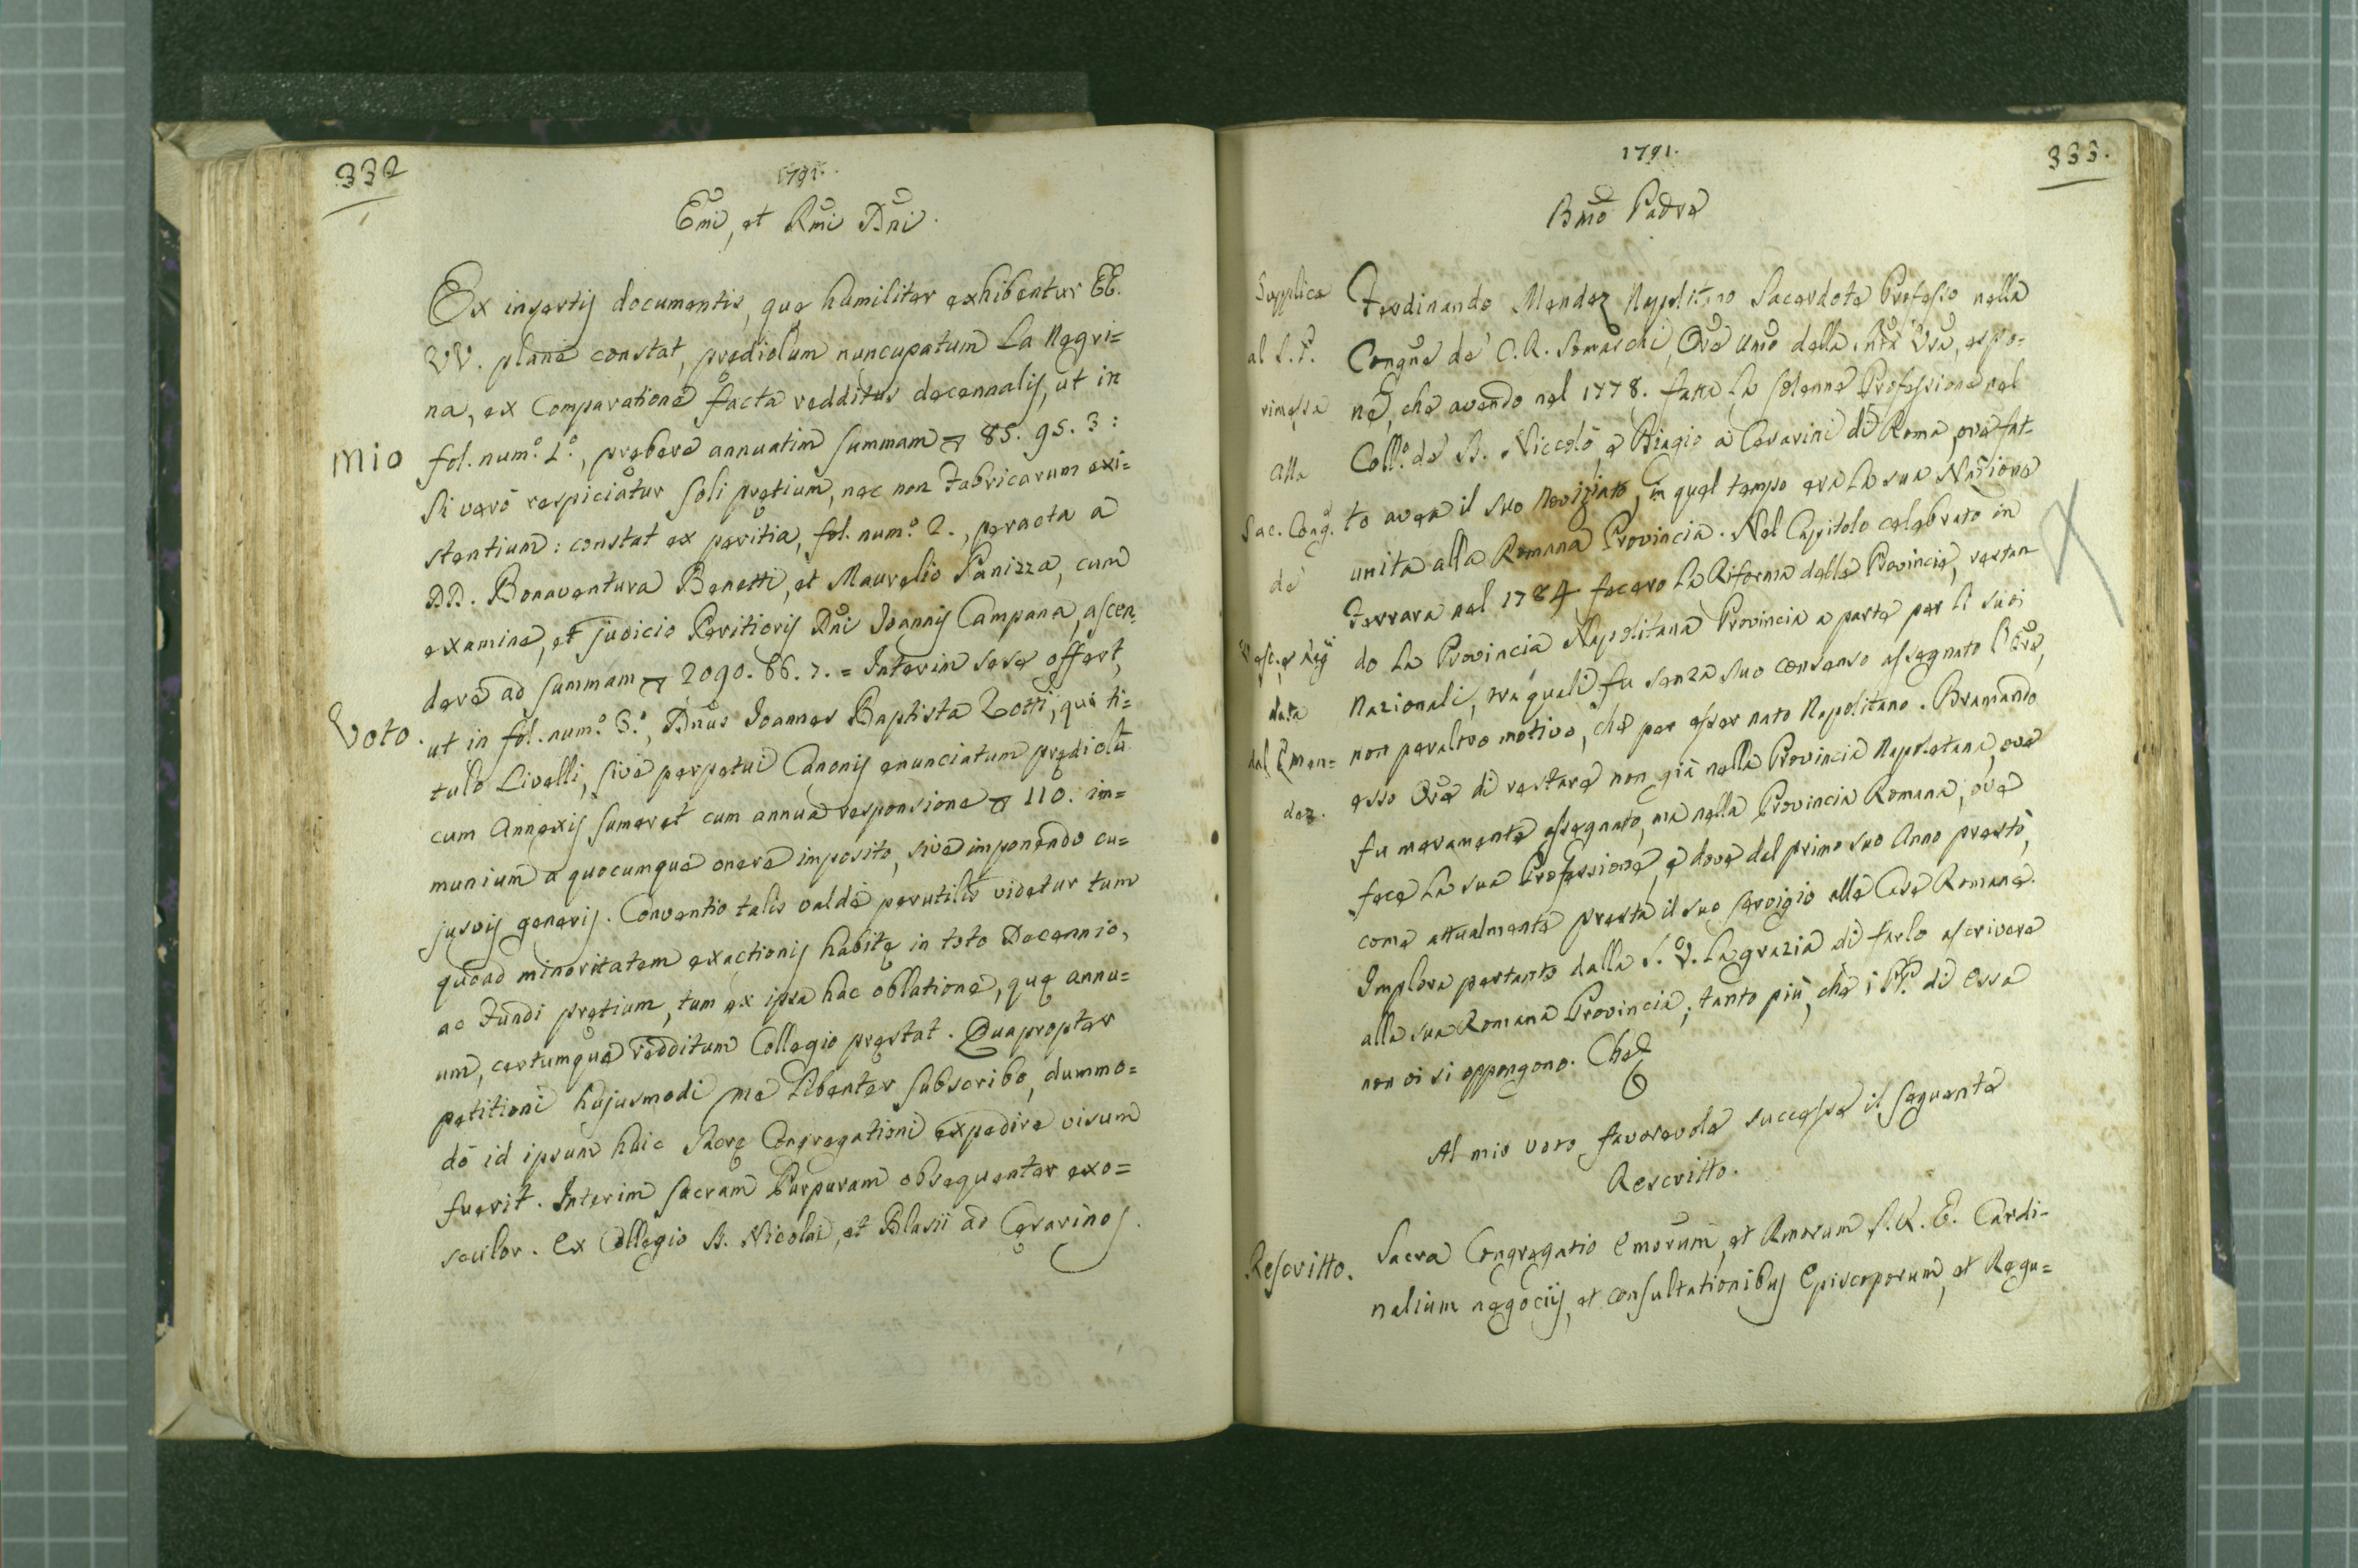 332
1791.
Emi, et Rmi Dni.
Ex insertis documentis, quę humiliter exhibentur EE.
VV. planè constat, prędiolum nuncupatum La Negri=
na, ex Comparatione facta redditus decennalis, ut in
Mio
fol. num.º 1.º, prębere annuatim summam 85. 95. 3:
Si verò respiciatur soli pretium, nec non Fabricarum exi=
stentium: constat ex peritia, fol. num.º 2., peracta a
DD. Bonaventura Benetti, et Maurelio Panizza, cum
examine, et judicio Peritioris Dni Joannis Campana, ascen=
dere ad summam 2090. 86. 7. = Interim sese offert,
Voto.
ut in fol. num.º 3.º, Dnus Joannes Baptista Zotti, qui ti=
tulo Livelli, sive perpetui Canonis enunciatum prędiolũ
cum Annexis sumeret cum annua responsione 110. im=
munium a quocumque onere imposito, sive imponendo cu=
jusvis generis. Conventio talis valdè perutilis videtur tum
quoad minoritatem exactionis habitę in toto Decennio,
ac Fundi pretium, tum ex ipsa hac oblatione, quę annu=
um, certumque redditum Collegio pręstat. Quapropter
petitioni hujusmodi me libenter subscribo, dummo=
dò id ipsum huic Sacrę Congregationi expedire visum
fuerit. Interim sacram Purpuram obsequenter exo=
sculor. Ex Collegio S. Nicolai, et Blasii ad Cęsarinos.
1791.
333.
Bmo Padre
Supplica
al S. P.
rimessa
alla
Sac. Cong.
de'
Vesc. e Reg.
data
dal P. Men=
dez.
Ferdinando Mendez Napolitano Sacerdote Professo nella
Congne de' C. R. Somaschi, Ore Umo della Stà Vra, espo=
ne, che avendo nel 1778. fatta la solenne Professione nel
Coll.º de' S. Niccolò, e Biagio a Cesarini di Roma, ove fat=
to avea il suo Novizziato, in qual tempo era la sua Nazione
unita alla Romana Provincia. Nel Capitolo celebrato in
Ferrara nel 1784 fecero la Riforma delle Provincie, restan
do la Provincia Napolitana Provincia a parte per li suoi
Nazionali, tra quali fu senza suo consenso assegnato l'Ore,
non peraltro motivo, che per esser nato Napolitano. Bramando
esso Ore di restare non già nella Provincia Napoletana, ove
fu meramente assegnato, ma nella Provincia Romana, ove
fece la sua Professione, e dove dal primo suo Anno prestò,
come attualmente presta il suo servigio alle Case Romane.
Implora pertanto dalla S. V. la grazia di farlo ascrivere
alla sua Romana Provincia; tanto più, che i PP. di essa
non vi si oppongono. Che
Al mio voto favorevole successe il seguente
Rescritto.
Rescritto.
Sacra Congregatio Emorum, et Rmorum S. R. E. Cardi=
nalium negociis, et consultationibus Episcoporum, et Regu=